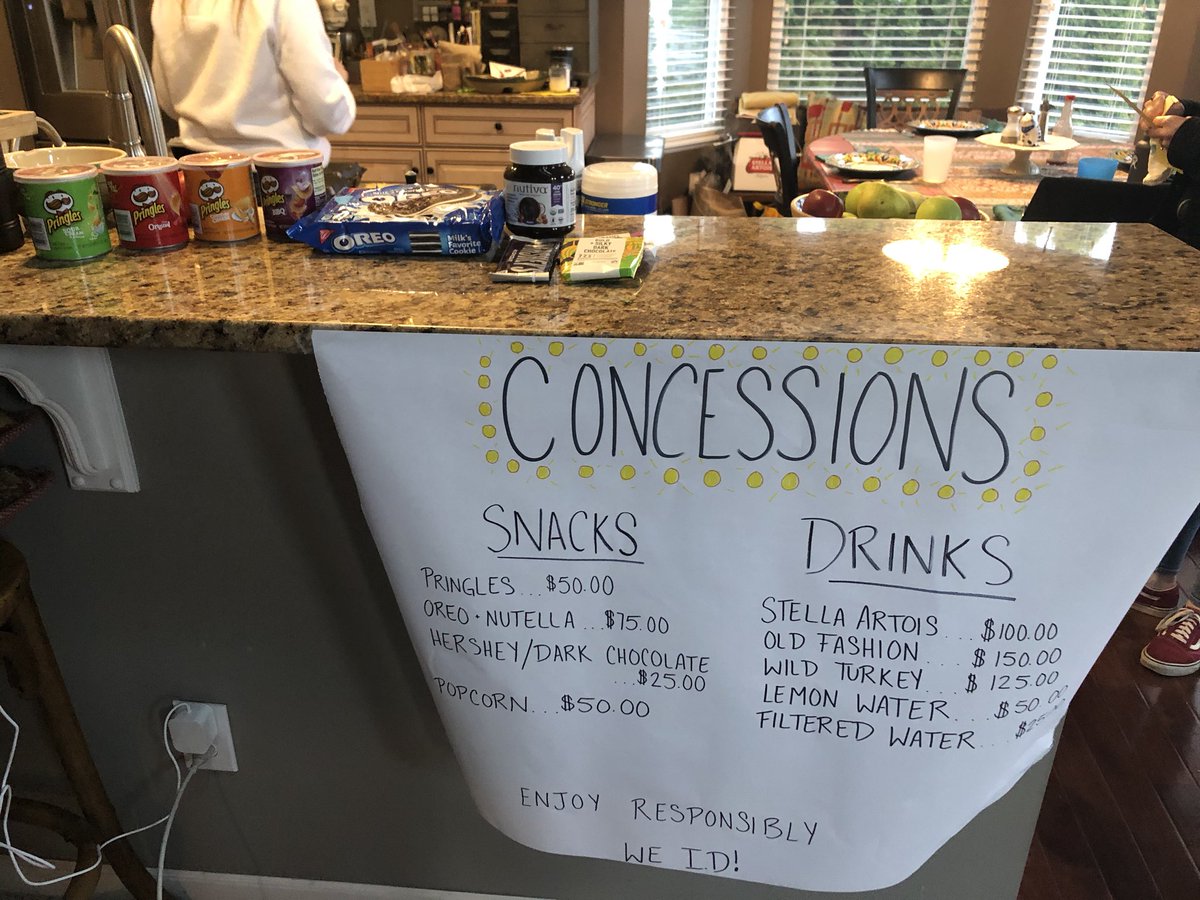 Pringles
Pringles
Original
Pringles
Pringles
BBQ
OREO
Milk's
Favorite
Cookie
nutiva
SILKY
DARK
CHOCOLATE
CONCESSIONS
SNACKS
PRINGLES...$50.00
OREO · NUTELLA ...$75.00
HERSHEY/DARK CHOCOLATE
...$25.00
POPCORN...$50.00
DRINKS
STELLA ARTOIS....$100.00
OLD FASHION....$150.00
WILD TURKEY...$125.00
LEMON WATER....$50.00
FILTERED WATER....
ENJOY RESPONSIBLY
WE I.D!